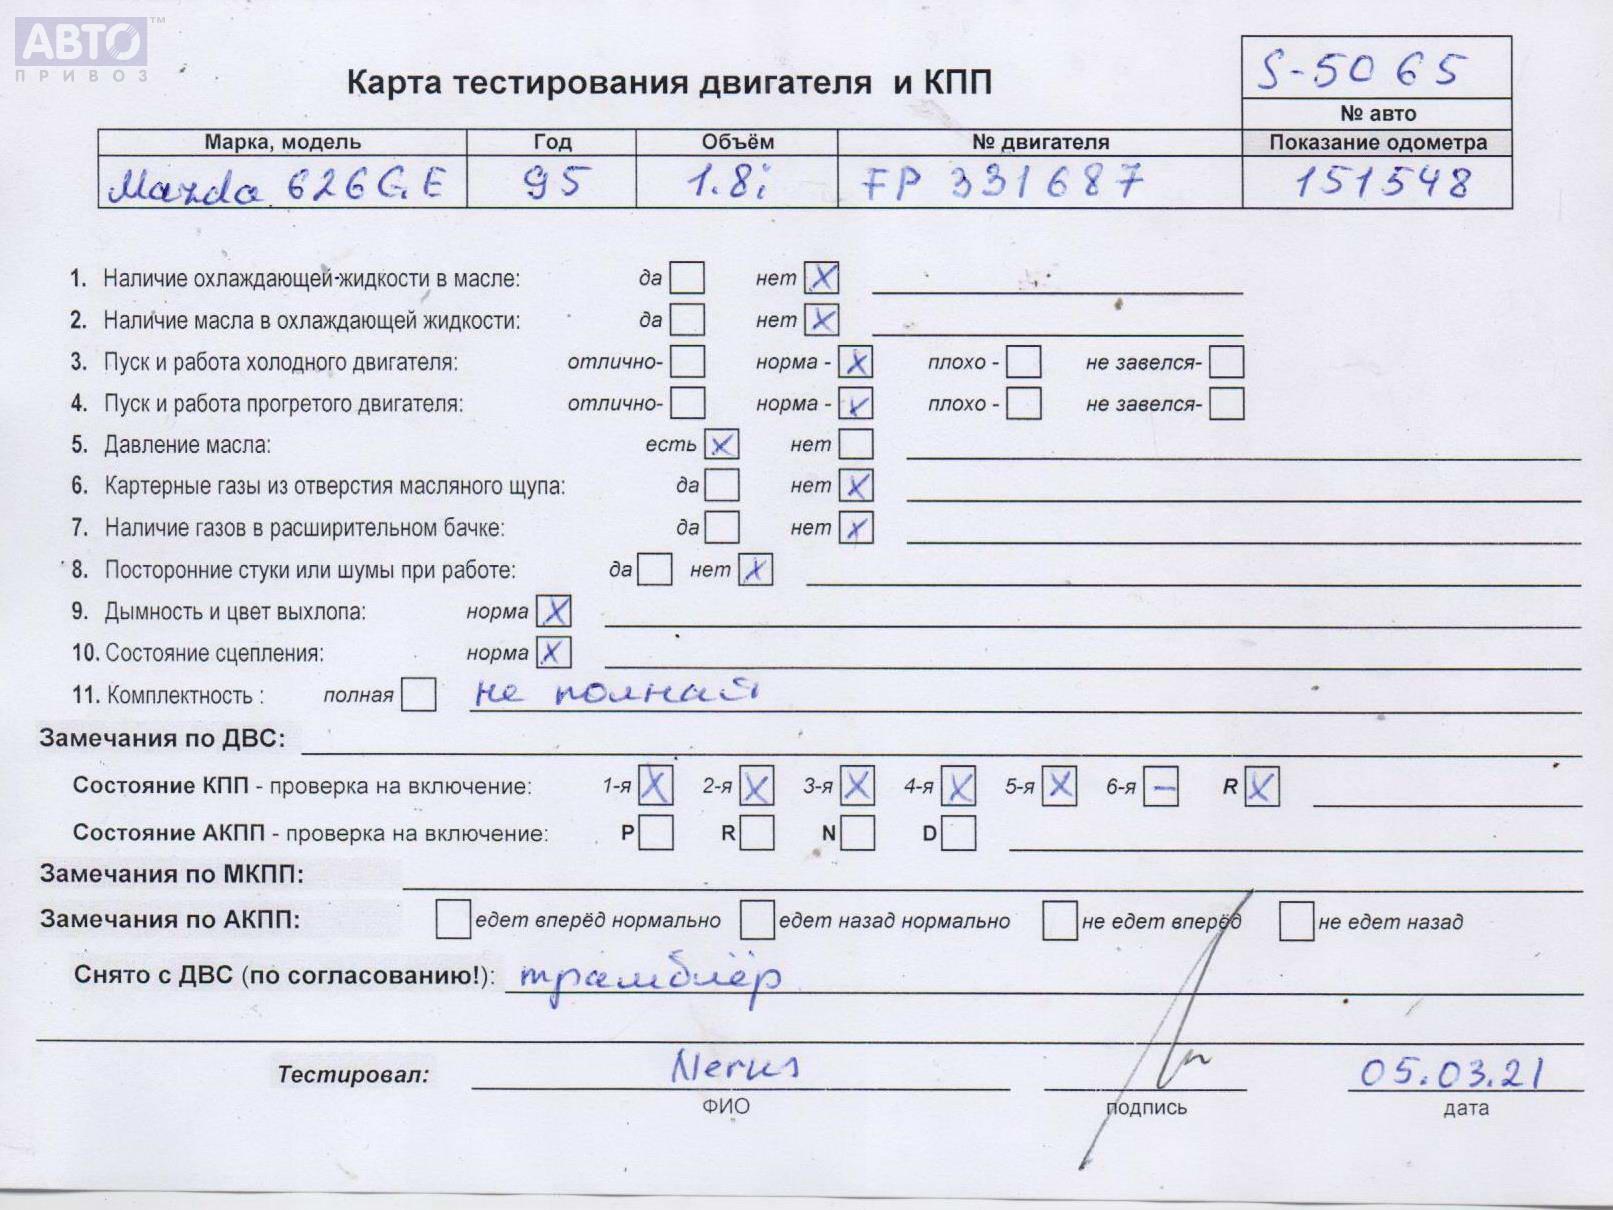 АВТО™
ПРИВОЗ
S-5065
Карта тестирования двигателя и КПП
№ авто
Марка, модель Год Объём № двигателя Показание одометра
Mazda 626GE 95 1.8i FP 331687 151548
1. Наличие охлаждающей жидкости в масле: да нет X
2. Наличие масла в охлаждающей жидкости: да нет X
3. Пуск и работа холодного двигателя: отлично- норма - X плохо - не завелся-
4. Пуск и работа прогретого двигателя: отлично- норма - X плохо - не завелся-
5. Давление масла: есть X нет
6. Картерные газы из отверстия масляного щупа: да нет X
7. Наличие газов в расширительном бачке: да нет X
8. Посторонние стуки или шумы при работе: да нет X
9. Дымность и цвет выхлопа: норма X
10. Состояние сцепления: норма X
11. Комплектность : полная не полная
Замечания по ДВС:
Состояние КПП - проверка на включение: 1-я X 2-я X 3-я X 4-я X 5-я X 6-я – R X
Состояние АКПП - проверка на включение: P R N D
Замечания по МКПП:
Замечания по АКПП: едет вперёд нормально едет назад нормально не едет вперёд не едет назад
Снято с ДВС (по согласованию!): трамблёр
Тестировал: 05.03.21
ФИО подпись дата